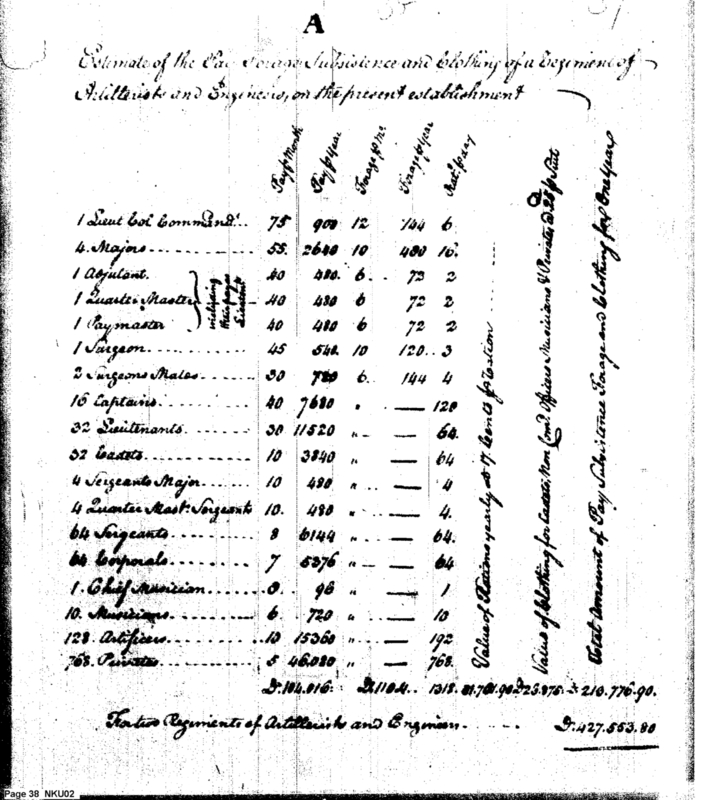 A
Estimate of the Pay Forage Subsistence and Clothing of a Regiment of
Artillerists and Engineers, on the present establishment
Pay ℔ Month Pay ℔ Year Forage ℔ Mo. Forage ℔ Year Rat. ℔ day
Value of Rations yearly at 17 Cents ℔ ration
Value of Clothing for Cadets Non Com.d Officers Musicians & Privates @ 25 ℔ Suit
Total Amount of Pay Subsistence Forage and Clothing for One Year
1 Lieut Col Command.t 75 900 12 144 6
4 Majors 55 2640 10 480 16
1 Adjutant 40 480 6 72 2
1 Quarter Master 40 480 6 72 2
1 Paymaster 40 480 6 72 2
including their pay as Lieutent
1 Surgeon 45 540 10 120 3
2 Surgeons Mates 30 720 6 144 4
16 Captains 40 7680 " — 120
32 Lieutenants 30 11520 " — 64
32 Cadets 10 3840 " — 64
4 Sergeants Major 10 480 " — 4
4 Quarter Mast. Sergeants 10 480 " — 4
64 Sergeants 8 6144 " — 64
64 Corporals 7 5376 " — 64
1 Chief Musician 8 96 " — 1
10 Musicians 6 720 " — 10
128 Artificers 10 15360 " — 192
768 Privates 5 46.080 " — 768
D. 104.016. D. 1104. 1318. 81.781.90 D 23.875 D. 210.776.90.
For two Regiments of Artillerists and Engineers D. 427.553.80
Page 38 NKU02